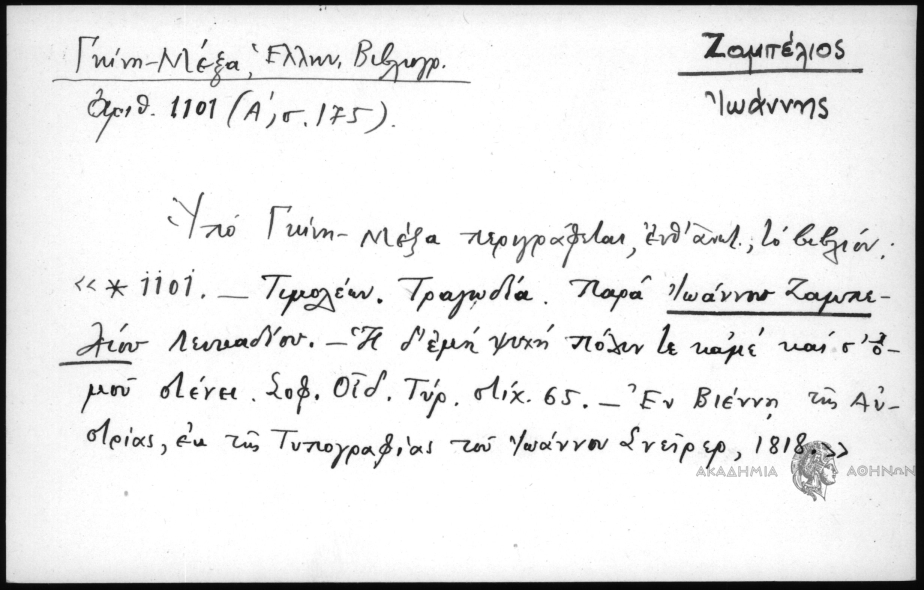 Γκίνη-Μέξα, Ἑλλην. Βιβλιογρ.
Ζαμπέλιος
ἀριθ. 1101 (Α', σ. 175).
Ἰωάννης
Ὑπό Γκίνη-Μέξα περιγράφεται, ἐνθ' ἀνωτ., τό βιβλίον:
«* 1101. – Τιμολέων. Τραγωδία. Παρά Ἰωάννου Ζαμπε-
λίου Λευκαδίου. – Ἡ δ' ἐμή ψυχή πόλιν τε κἀμέ καί σ' ὁ-
μοῦ στένει. Σοφ. Οἰδ. Τύρ. στίχ. 65. – Ἐν Βιέννῃ τῆς Αὐ-
στρίας, ἐκ τῆς Τυπογραφίας τοῦ Ἰωάννου Σνεῖρερ, 1818.»
ΑΚΑΔΗΜΙΑ ΑΘΗΝΩΝ